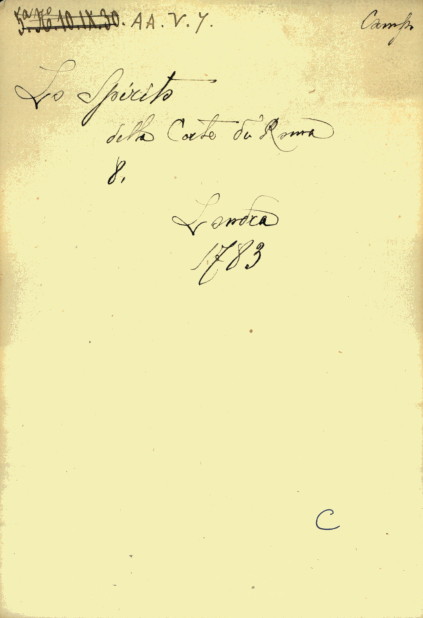 5.ª Ne 10.IX.30. AA.V.7. Camp.
Lo Spirito
della Corte di Roma
8.
Londra
1783
C